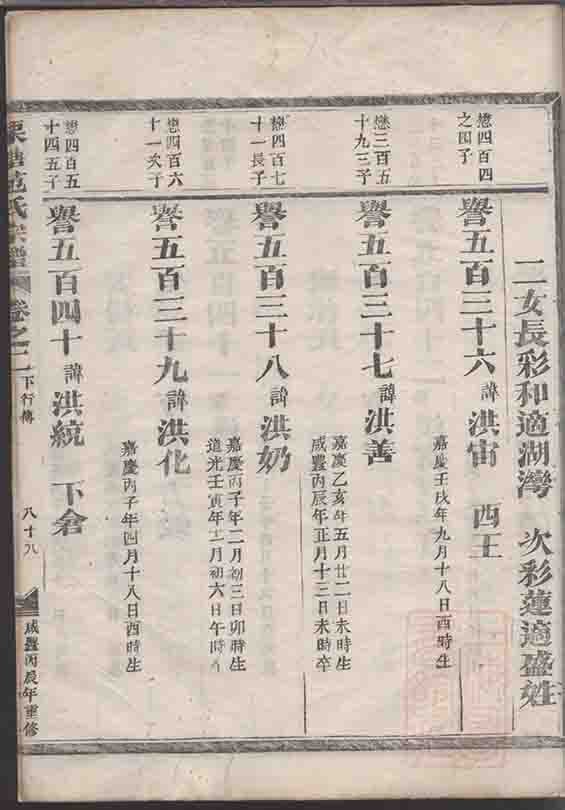 二女長彩和適湖灣 次彩蓮適盛姓
懋四百四
之四子
譽五百三十六 諱洪宙 西王
嘉慶壬戌年九月十八日酉時生
懋三百五
十九三子
譽五百三十七 諱洪善
嘉慶乙亥年五月廿二日未時生
咸豐丙辰年正月十三日未時卒
懋四百七
十一長子
譽五百三十八 諱洪奶
嘉慶丙子年二月初三日卯時生
道光壬寅年二月初六日午時卒
懋四百六
十一次子
譽五百三十九 諱洪化
嘉慶丙子年四月十八日酉時生
懋四百五
十四五子
譽五百四十 諱洪統 下倉
范氏宗譜 卷之二 下行傳 八十八 咸豐丙辰年重修